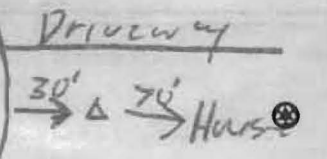 Driveway
30' → Δ 70' → House